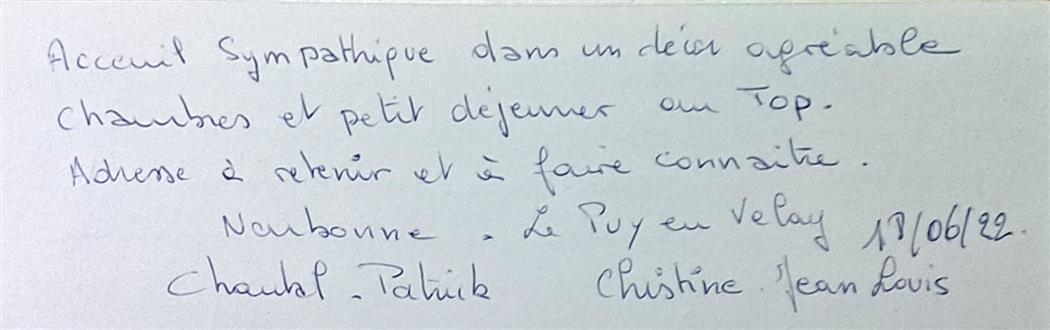 Acceuil Sympathique dans un décor agréable
chambres et petit déjeuner au Top.
Adresse à retenir et à faire connaitre.
Narbonne - Le Puy en Velay 18/06/22.
Chantal - Patrick Christine - Jean Louis